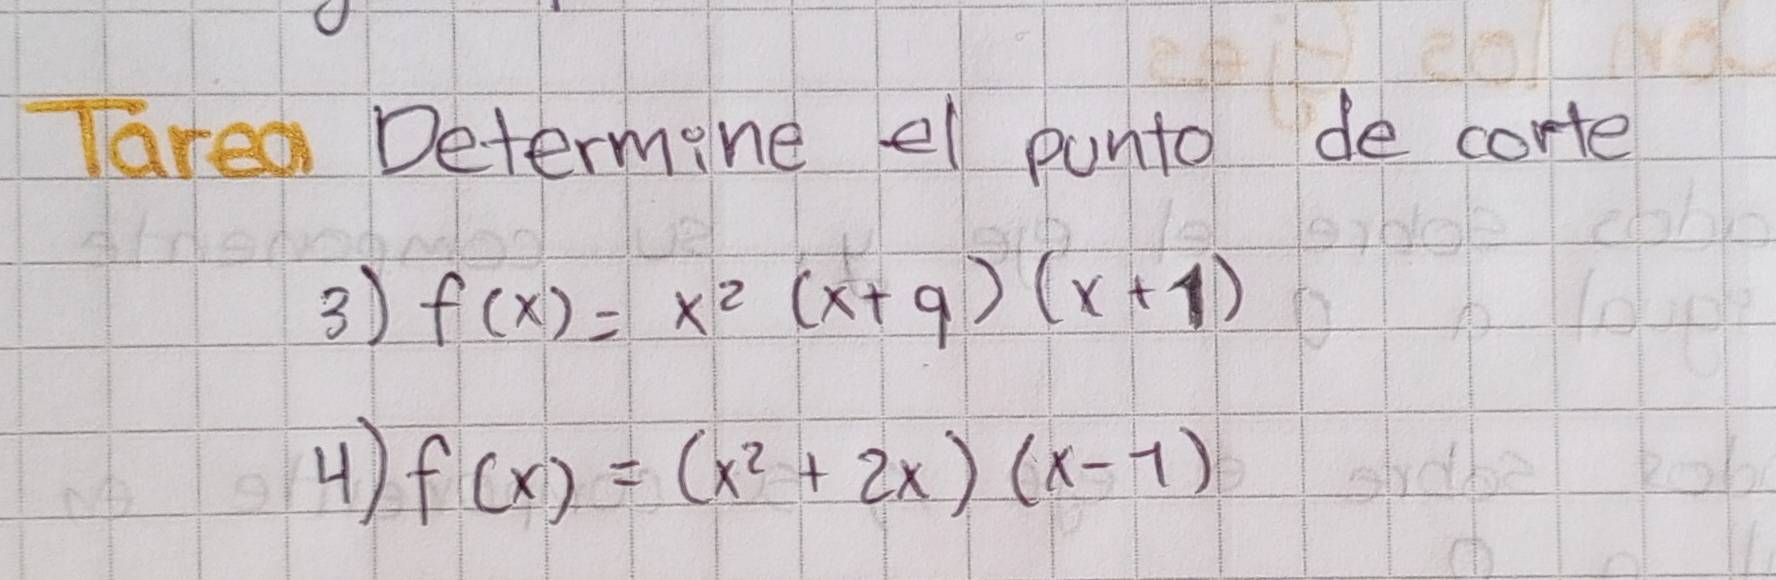 Tarea Determine el punto de corte
3) f(x) = x² (x+9) (x+1)
4) f(x) = (x² + 2x) (x-1)